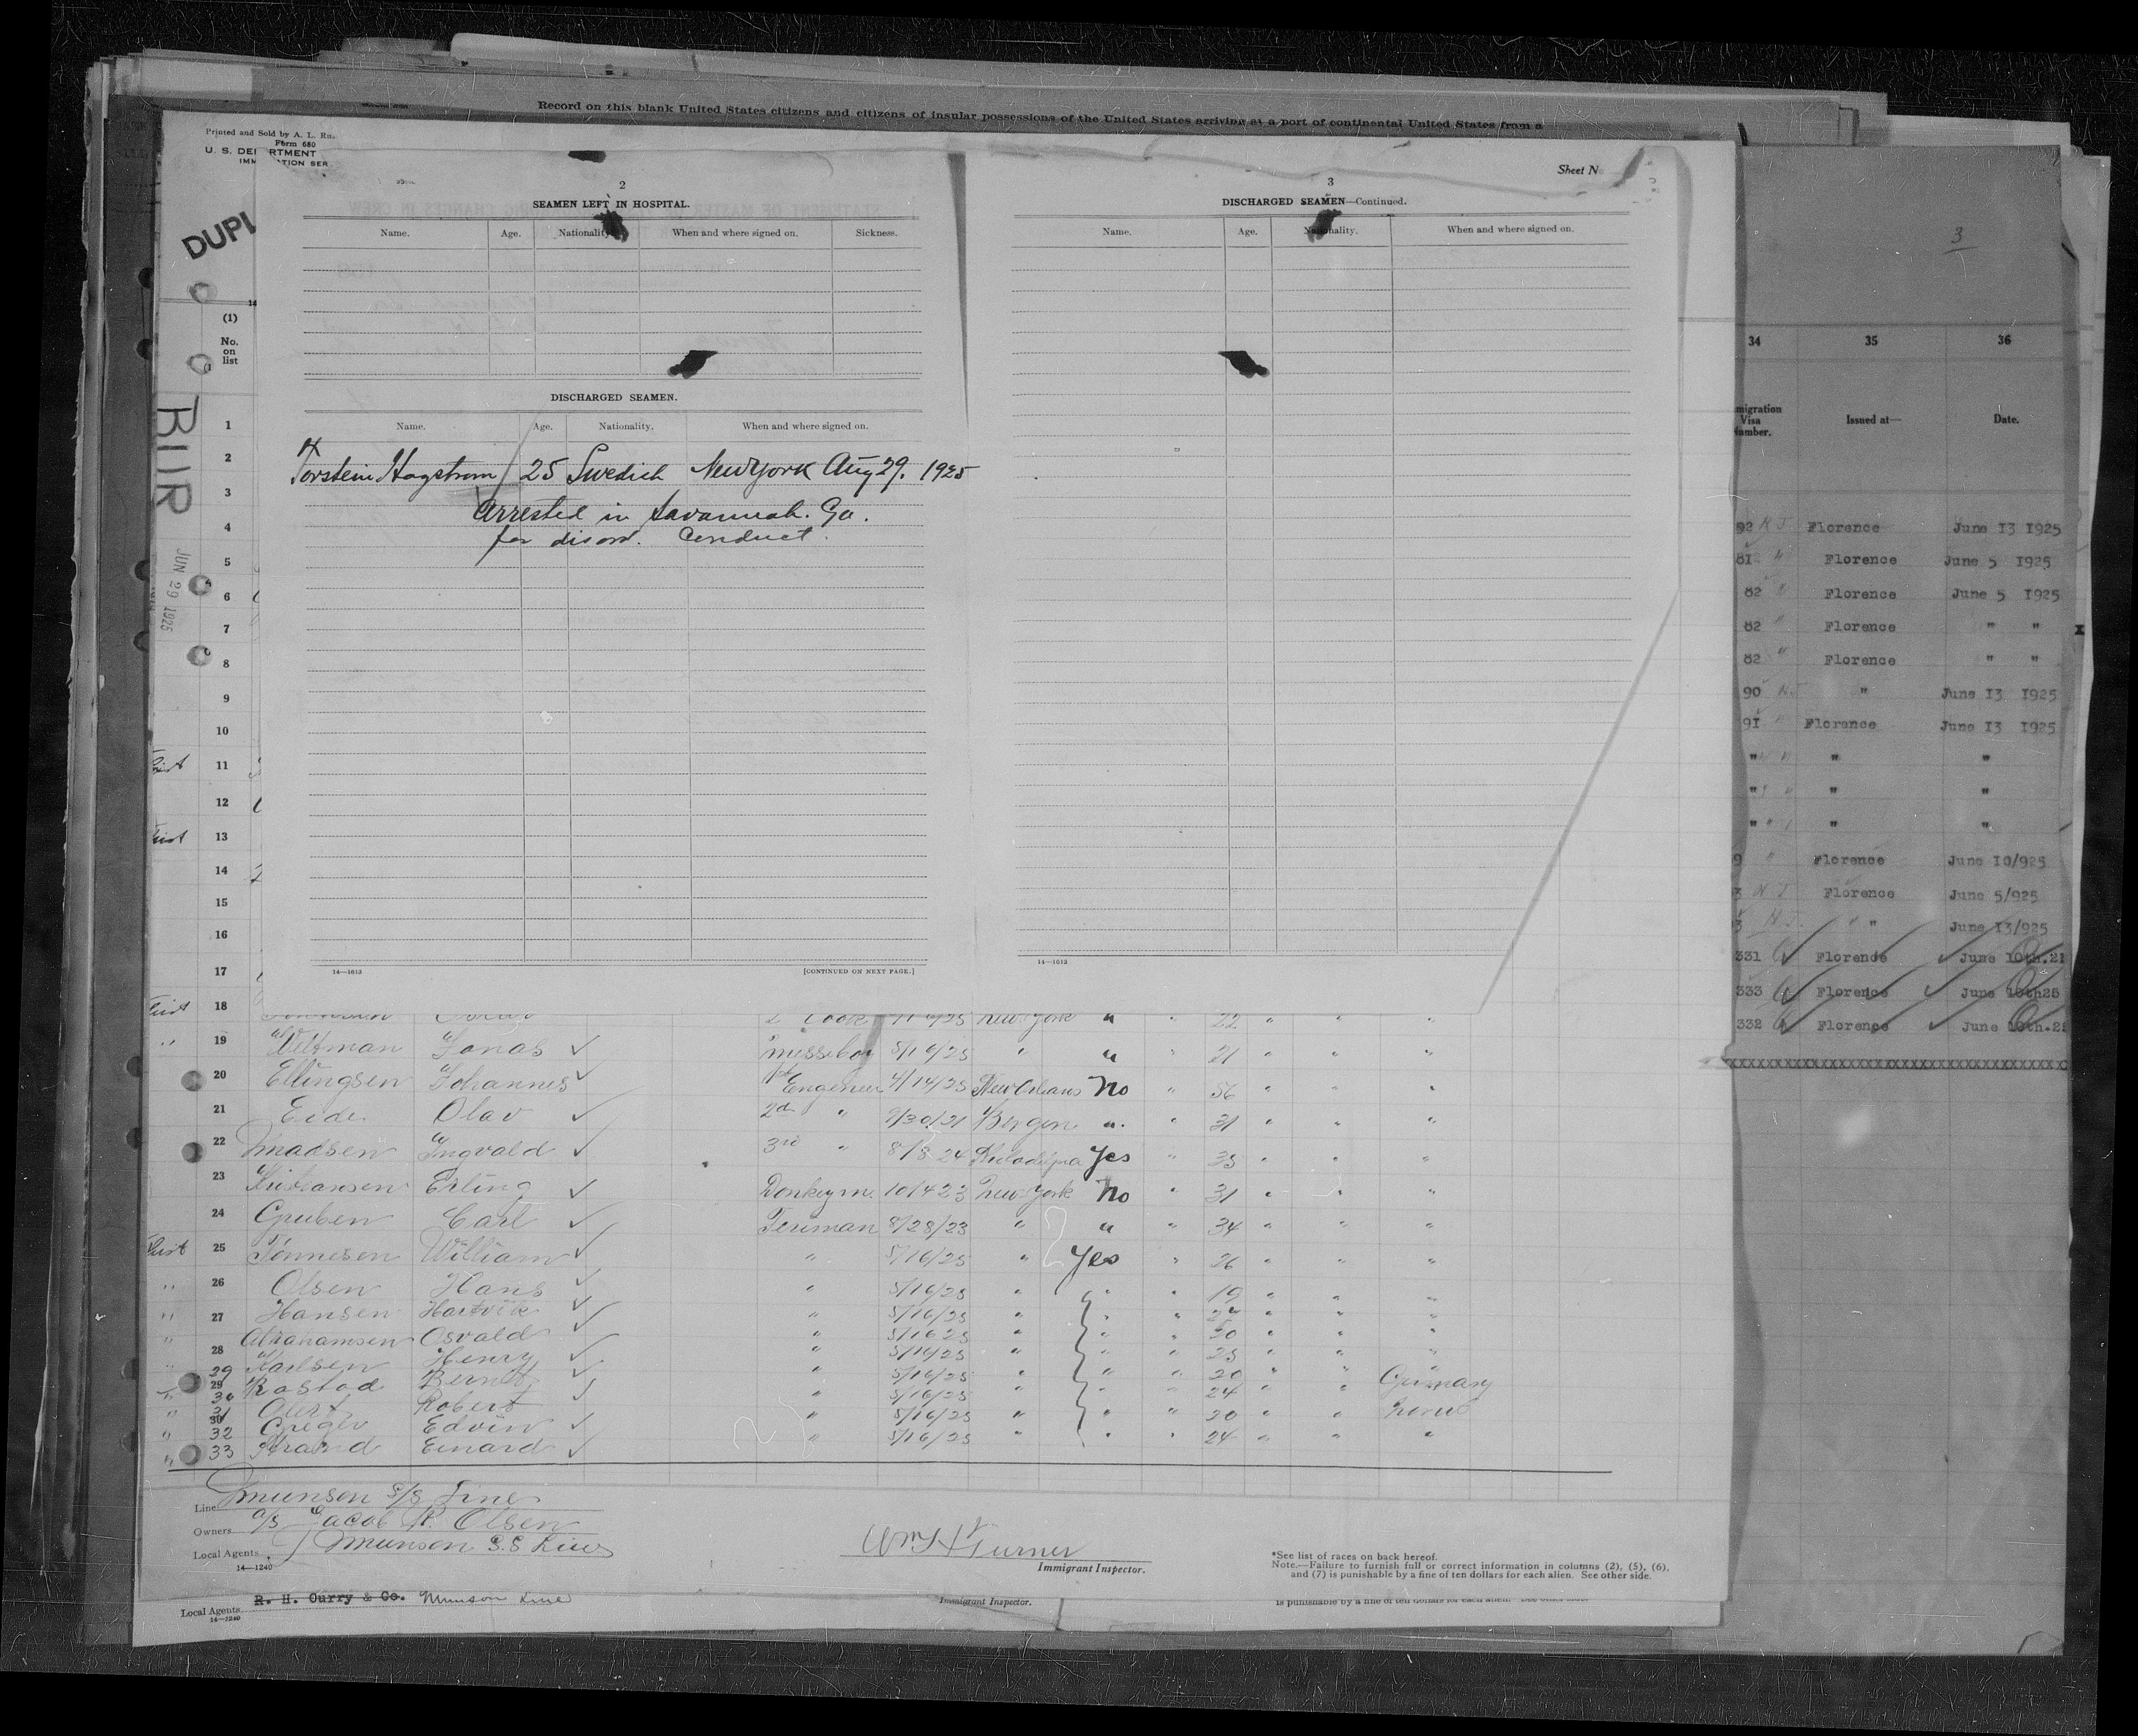 Record on this blank United States citizens and citizens of insular possessions of the United States arriving at a port of continental United States from a
Printed and Sold by A. L. Ru
Form 680
U. S. DEPARTMENT
IMM TION SER
DUPL
(1)
No.
on
list
JUN 29 1925
Sheet N
2
SEAMEN LEFT IN HOSPITAL.
Name. Age. Nationality When and where signed on. Sickness.
DISCHARGED SEAMEN.
Name. Age. Nationality. When and where signed on.
Torstein Hagstrom 25 Swedich New York Aug 29. 1925
Arrested in Savannah. Ga.
for disord. Conduct.
14—1613 [CONTINUED ON NEXT PAGE.]
3
DISCHARGED SEAMEN—Continued.
Name. Age. Nationality. When and where signed on.
14—1613
3
34 35 36
migration
Visa
Number. Issued at— Date.
92 Florence June 13 1925
81 " Florence June 5 1925
82 " Florence June 5 1925
82 " Florence " "
82 " Florence " "
90 " June 13 1925
91 " Florence June 13 1925
" " "
" " "
" " "
9 " Florence June 10/925
3 Florence June 5/925
3 " June 13/925
331 Florence June 10th.
333 Florence June 10th25
332 Florence June 10th.
1
2
3
4
5
6
7
8
9
10
11
12
13
14
15
16
17
18 Cook New York " " 22 " " "
19 Jonas ✓ messeboy 5/16/25 " " " 21 " " "
20 Ellingsen Johannes ✓ 1st Engeneer 4/14/25 New Orleans No " 56 " " "
21 Eide Olav ✓ 2nd " 9/30/21 Bergen " " 31 " " "
22 Madsen Ingvald ✓ 3rd " 8/8 24 Philadelpia Yes " 35 " " "
23 Kristiansen Erling ✓ Donkeym. 10/4 23 New York No " 31 " " "
24 Gruben Carl ✓ Firiman 8/28/23 " " " 34 " " "
25 Tönnesen William ✓ " 5/16/25 " Yes " 26 " " "
26 Olsen Hans ✓ " 5/16/25 " " " 19 " " "
27 Hansen Hartvik ✓ " 5/16/25 " " " " " "
28 Abrahamsen Osvald ✓ " 5/16 25 " " " 20 " " "
29 Karlsen Henry ✓ " 5/16/25 " " " 25 " " "
30 Rostad Bernt ✓ " 5/16/25 " " " 20 " " "
31 Robert ✓ " 5/16/25 " " " 24 " " Germany
32 Greger Edvin ✓ " 5/16/25 " " " 20 " " Norw
33 Strand Einard ✓ " 5/16/25 " " " 24 " " "
Line Munson S/S Line
Owners A/S Jacob R. Olsen
Local Agents Munson S.S Lines
14—1240
Wm H Turner
Immigrant Inspector.
*See list of races on back hereof.
Note.—Failure to furnish full or correct information in columns (2), (5), (6),
and (7) is punishable by a fine of ten dollars for each alien. See other side.
Local Agents R. H. Curry & Co. Munson Line
14—1240
Immigrant Inspector.
is punishable by a fine of ten dollars for each alien. See other side.